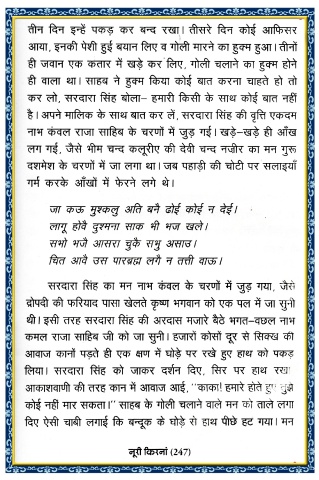 तीन दिन इन्हें पकड़ कर बन्द रखा। तीसरे दिन कोई आफिसर
आया, इनकी पेशी हुई बयान लिए व गोली मारने का हुक्म हुआ। तीनों
ही जवान एक कतार में खड़े कर लिए, गोली चलाने का हुक्म होने
ही वाला था। साहब ने हुक्म किया कोई बात करना चाहते हो तो
कर लो, सरदारा सिंह बोला– हमारी किसी के साथ कोई बात नहीं
है। अपने मालिक के साथ बात कर लें, सरदारा सिंह की वृत्ति एकदम
नाभ कंवल राजा साहिब के चरणों में जुड़ गई। खड़े-खड़े ही आँख
लग गई, जैसे भीम चन्द कलूरीए की देवी चन्द नज़ीर का मन गुरू
दशमेश के चरणों में जा लगा था। जब पहाड़ी की चोटी पर सलाइयाँ
गर्म करके आँखों में फेरने लगे थे।
जा कऊ मुश्कलु अति बनै ढोई कोई न देई।
लागू होवै दुश्मना साक भी भज खले।
सभो भजै आसरा चुकै सभु असाउ।
चित आवै उस पारब्रह्म लगै न तत्ती वाऊ।
सरदारा सिंह का मन नाभ कंवल के चरणों में जुड़ गया, जैसे
द्रोपदी की फरियाद पासा खेलते कृष्ण भगवान को एक पल में जा सुनी
थी। इसी तरह सरदारा सिंह की अरदास मजारे बैठे भगत-वछल नाभ
कमल राजा साहिब जी को जा सुनी। हजारों कोसों दूर से सिक्ख की
आवाज कानों पड़ते ही एक क्षण में घोड़े पर रखे हुए हाथ को पकड़
लिया। सरदारा सिंह को जाकर दर्शन दिए, सिर पर हाथ रखा
आकाशवाणी की तरह कान में आवाज आई, ''काका! हमारे होते हुए तुझे
कोई नहीं मार सकता।'' साहब के गोली चलाने वाले मन को ताले लगा
दिए ऐसी चाबी लगाई कि बन्दूक के घोड़े से हाथ पीछे हट गया। मन
नूरी किरनां (247)